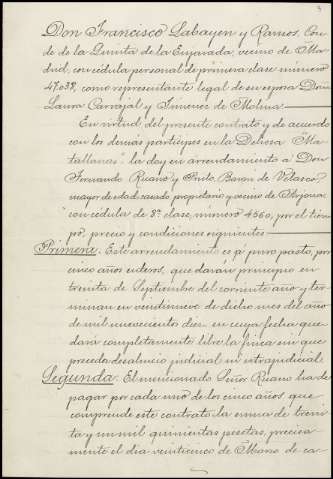 Don Francisco Labayen y Ramos, Con-
de de la Quinta de la Enjarada, vecino de Ma-
drid, con cédula personal de primera clase número
47.038, como representante legal de su esposa Doña
Laura Carvajal y Jimenez de Molina.
En virtud del presente contrato y de acuerdo
con los demás participes en la Dehesa "Ma-
tallana", la doy en arrendamiento a Don
Fernando Ruano y Prieto, Barón de Velasco,
mayor de edad, casado, propietario y vecino de Arjona
con cédula de 3ª clase, número 4560, por el tiem-
po, precio y condiciones siguientes
Primera. Este arrendamiento es á puro pasto, por
cinco años enteros, que darán principio en
treinta de Septiembre del corriente año y ter-
minan en veintinueve de dicho mes del año
de mil novecientos diez, en cuya fecha que
dará completamente libre la finca sin que
preceda desahucio judicial ni extrajudicial.
Segunda. El mencionado Señor Ruano ha de
pagar por cada uno de los cinco años que
comprende este contrato la suma de trein-
ta y un mil quinientas pesetas, precisa-
mente el dia veinticinco de Marzo de ca-